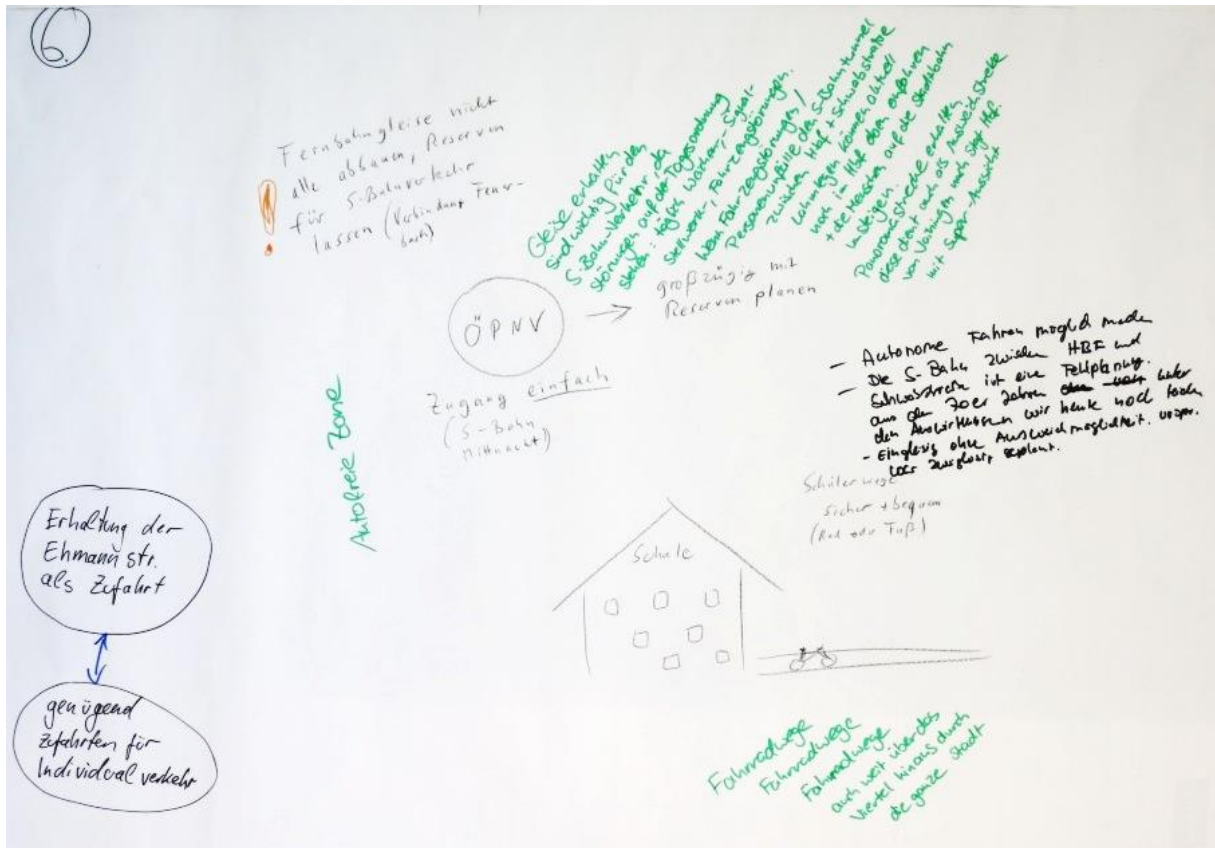 6.
Fernbahngleise nicht
alle abbauen, Reserven
für S-Bahnverkehr
lassen (Verbindung Feuer-
bach)
!
Gleise erhalten
sind wichtig für den
S-Bahn-Verkehr, da
Störungen auf der Tagesordnung
stehen: täglich Weichen-, Signal-
Stellwerk-, Fahrzeugstörungen.
Wenn Fahrzeugstörungen /
Personenunfälle den S-Bahntunnel
zwischen Hbf + Schwabstraße
lahmlegen können aktuell
noch im Hbf oben
+ die Menschen auf die Stadtbahn
umsteigen.
Panoramastrecke erhalten
diese dient auch als Ausweichstrecke
von Vaihingen nach Stgt Hbf.
mit Super-Aussicht
ÖPNV
→ großzügig mit
Reserven planen
Zugang einfach
(S-Bahn
Mittnacht)
Autofreie Zone
- Autonome Fahren möglich machen
- Die S-Bahn zwischen HBF und
Schwabstraße ist eine Fehlplanung.
aus den 70er Jahren unter
den Auswirkungen wir heute noch
- Eingleisig ohne Ausweichmöglichkeit.
war zweigleisig geplant.
Schülerwege
sicher + bequem
(Rad oder Fuß)
Schule
Erhaltung der
Ehmannstr.
als Zufahrt
genügend
Zufahrten für
Individualverkehr
Fahrradwege
Fahrradwege
Fahrradwege
auch weit über das
Viertel hinaus durch
die ganze Stadt